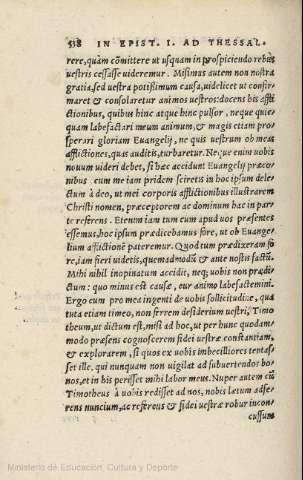 538 IN EPIST. I. AD THESSAL.
rere, quàm cōmittere ut usquam in prospiciendo rebus
uestris cessasse uideremur. Misimus autem non nostra
gratia, sed uestra potissimum causa, uidelicet ut confir
maret & consolaretur animos uestros: docens bis affli
ctionibus, quibus hinc atque hinc pulsor, neque quic
quam labefactari meum animum, & magis etiam pro
sperari gloriam Euangelij, ne quis uestrum ob meas
afflictiones, quas auditis, turbaretur. Neque enim uobis
nouum uideri debet, si hæc accidunt Euangelij præco
nibus cum me iam pridem scireris in hoc ipsum dele
ctum à deo, ut mei corporis afflictionibus illustrarem
Christi nomen, præceptorem ac dominum hac in par
te referens. Etenim iam tum cum apud uos præsentes
essemus, hoc ipsum prædicebamus fore, ut ob Euange
lium afflictionē pateremur. Quod tum prædixeram fo
re, iam fieri uidetis, quemadmodū & ante nostis factū.
Mihi nihil inopinatum accidit, neq; uobis non prædi
ctum: quo minus est causæ, cur animo labefactemini.
Ergo cum pro mea ingenti de uobis sollicitudine, qua
tuta etiam timeo, non ferrem desiderium uestri, Timo
theum, ut dictum est, misi ad hoc, ut per hunc quodam
modo præsens cognoscerem fidei uestræ constantiam,
& explorarem, si quos ex uobis imbecilliores tentas
set ille, qui nunquam non uigilat ad subuertendor bo
nos, et in his perisset mihi labor meus. Nuper autem cū
Timotheus à uobis redisset ad nos, nobis lætum adfe
rens nuncium, ac referens & fidei uestræ robur incon
cussum
Ministerio de Educación, Cultura y Deporte